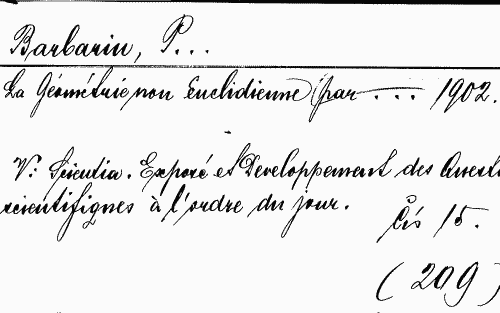 Barbarin, P...
La Géométrie non Euclidienne (par ... 1902.
V: Scientia. Exposé et Developpement des Quest
scientifiques à l'ordre du jour.
15.
(209)